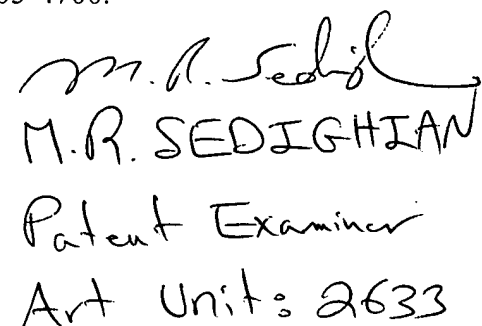 M.R. Sedigh
M.R. SEDIGHIAN
Patent Examiner
Art Unit: 2633